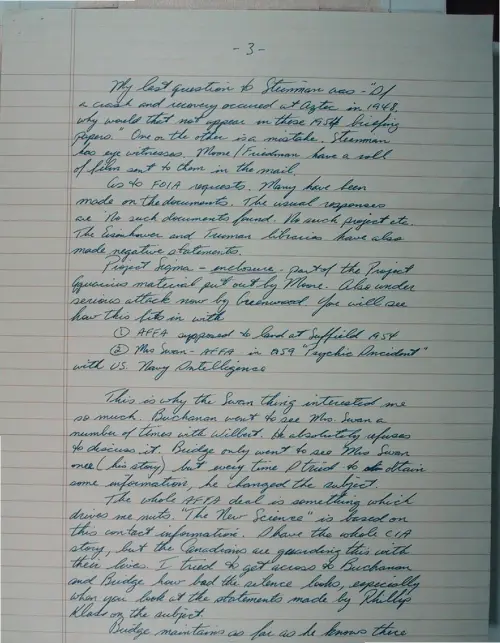 - 3 -
My last question to Steinman was - "If
a crash and recovery occured at Aztec in 1948,
why would that not appear in these 1954 briefing
papers." One or the other is a mistake. Steinman
has eye witnesses. Moore/Friedman have a roll
of film sent to them in the mail.
As to FOIA requests. Many have been
made on the documents. The usual responses
are "No such documents found. No such project etc.
The Eisenhower and Truman libraries have also
made negative statements.
Project Sigma - enclosure - part of the Project
Aquarius material put out by Moore. Also under
serious attack now by Greenwood. You will see
how this fits in with
① AFFA supposed to land at Suffield 1954
② Mrs Swan - AFFA in 1959 "Psychic Incident"
with U.S. Navy Intelligence
This is why the Swan thing interested me
so much. Buchanan went to see Mrs. Swan a
number of times with Wilbert. He absolutely refuses
to discuss it. Budge only went to see Mrs Swan
once (his story), but every time I tried to obtain
some information, he changed the subject.
The whole AFFA deal is something which
drives me nuts. "The New Science" is based on
this contact information. I have the whole CIA
story, but the Canadians are guarding this with
their lives. I tried to get across to Buchanan
and Budge how bad the silence looks, especially
when you look at the statements made by Phillip
Klass on the subject.
Budge maintains as far as he knows there